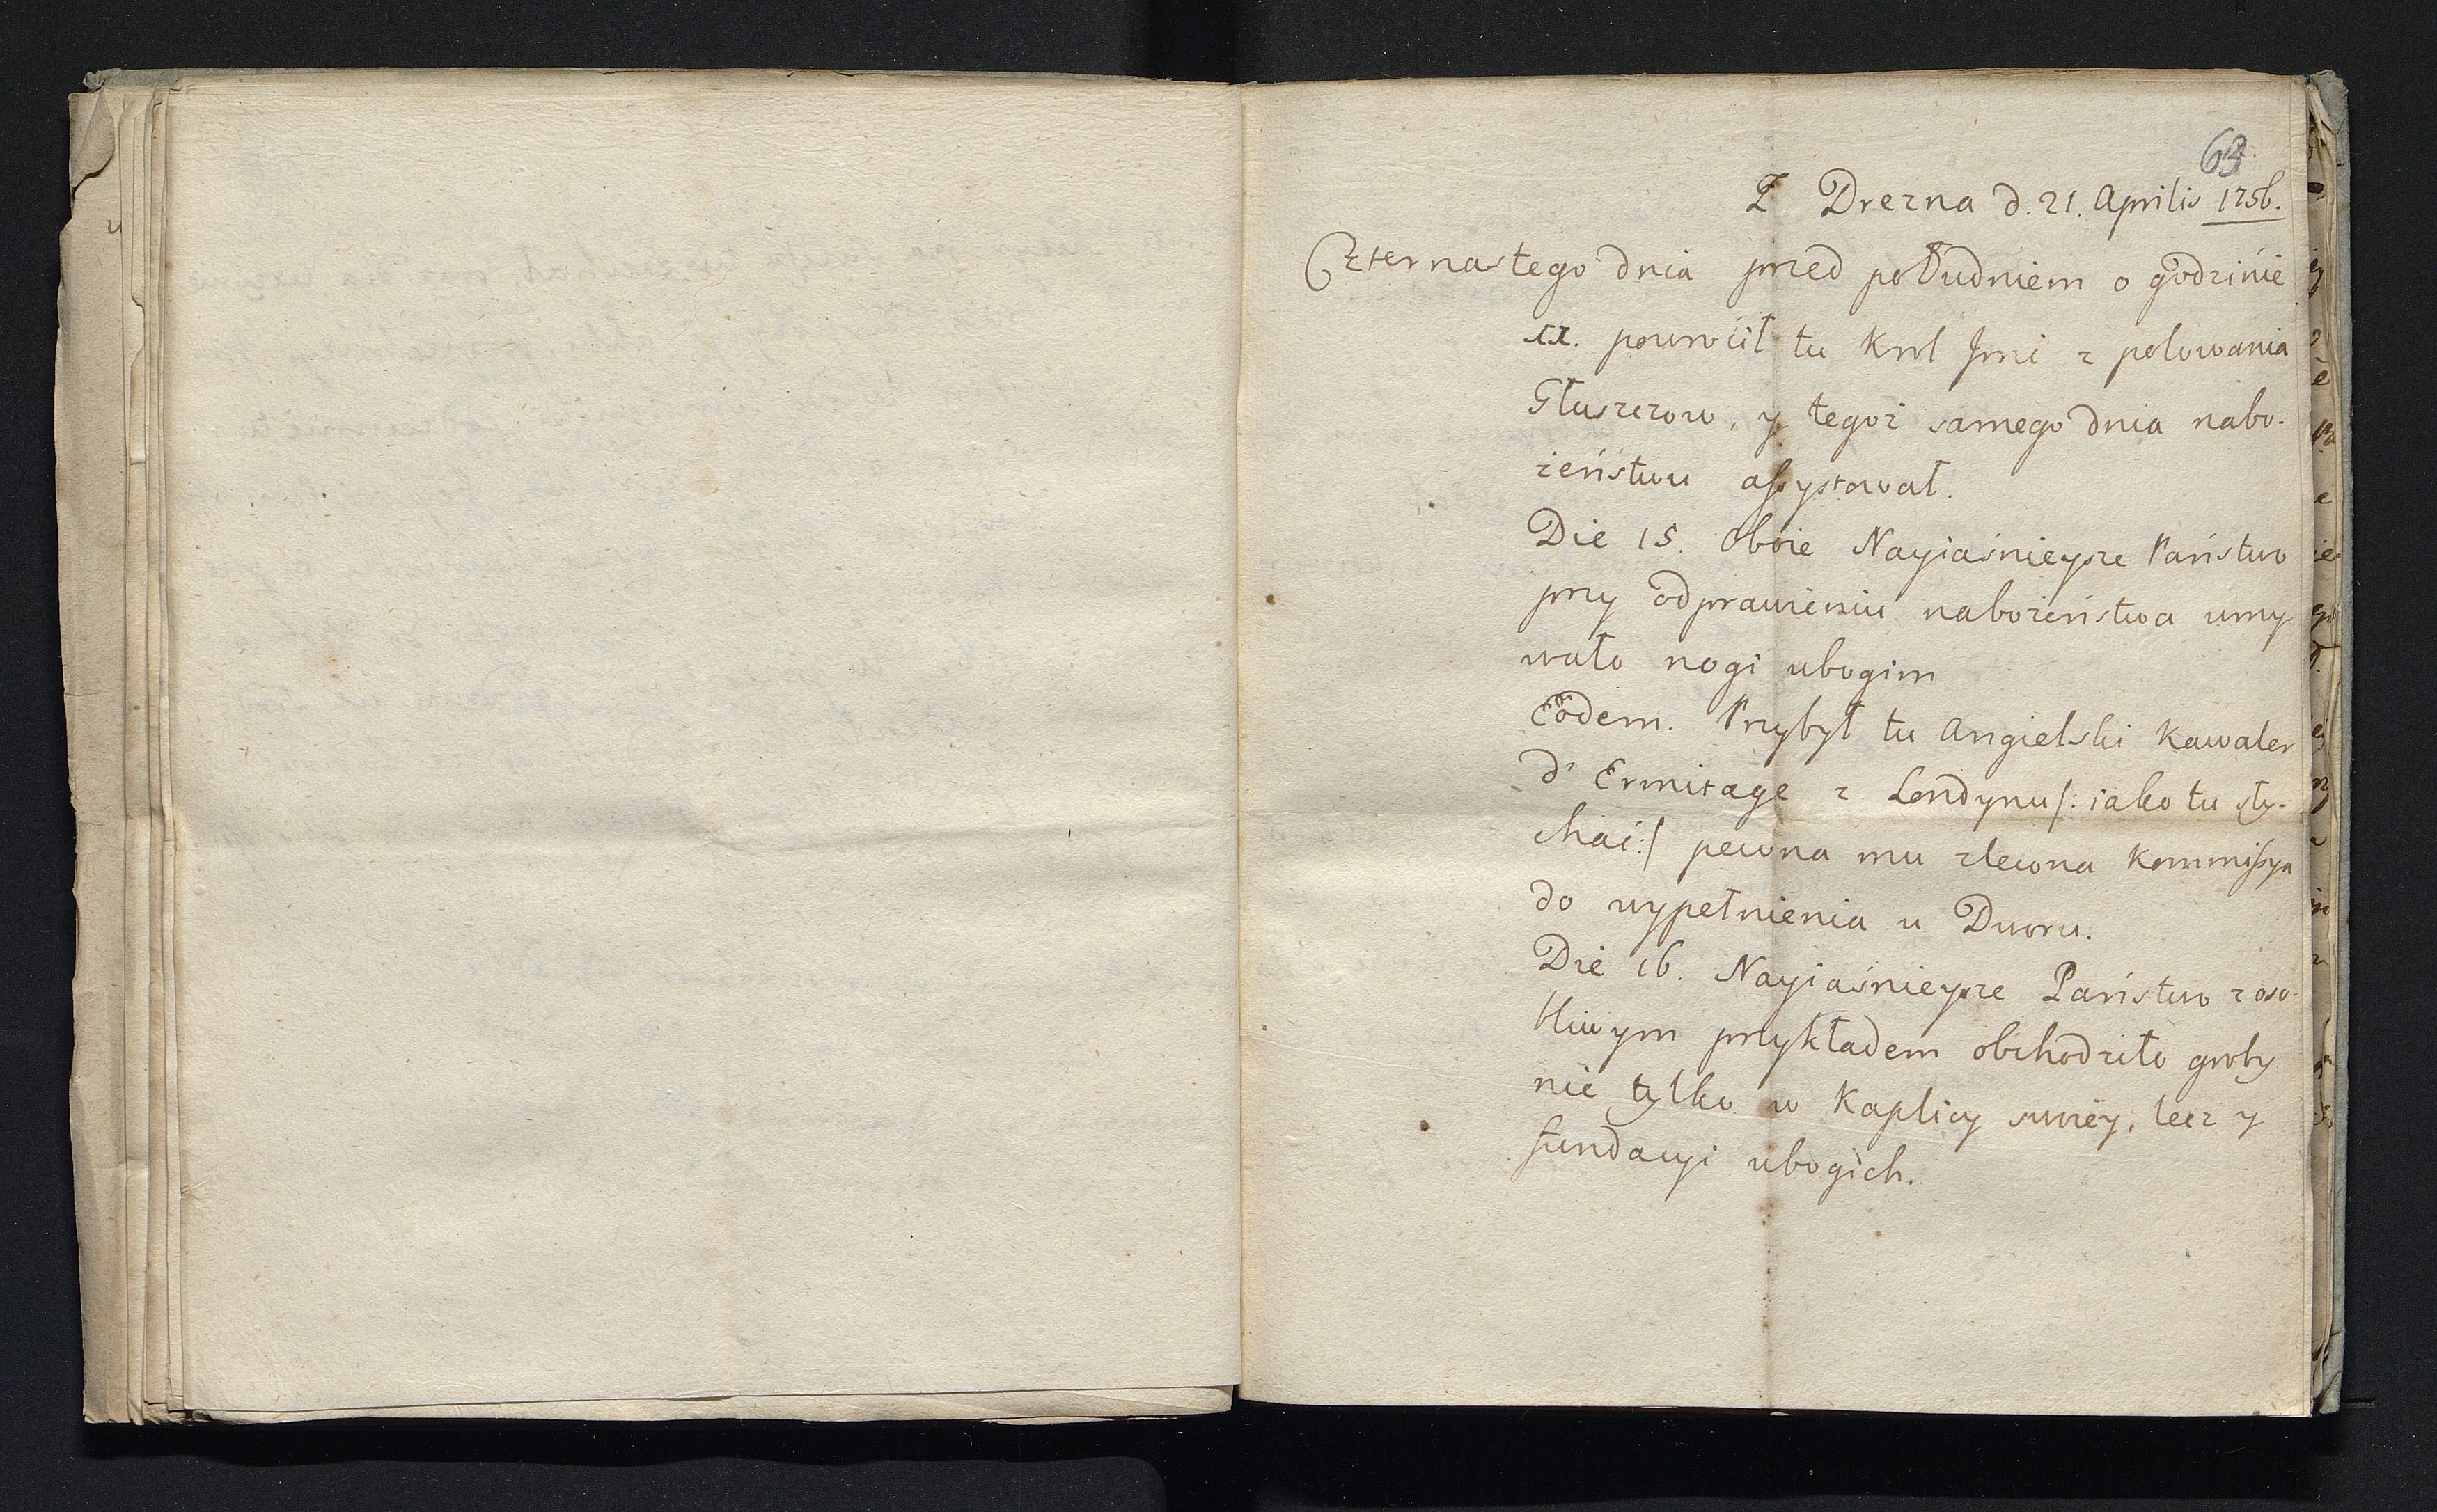 63.
Z Drezna d. 21. Aprilis 1756.
Czternastego dnia przed połudńiem o godzińie
XI. powrócił tu Krol Jmći z polowania
Głuszczow, y tegoż samego dnia nabo-
żeństwu assystował.
Die 15. Oboie Nayiaśnieysze Państwo
przy odprawieniu nabożeństwa umy-
wało nogi ubogim
Eodem. Przybył tu Angielski Kawaler
d' Ermitage z Londynu /: iako tu sły-
chać :/ pewna mu zlecona Kommissya
do wypełnienia u Dworu.
Die 16. Nayiaśnieysze Państwo z oso-
bliwym przykładem obchodziło groby
nie tylko w Kaplicy swoiéy, lecz y
fundacyi ubogich.